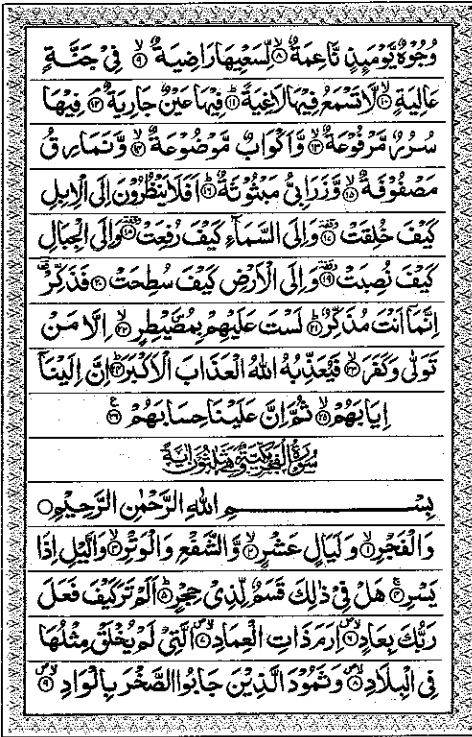 وُجُوْهٌ يَّوْمَىِٕذٍ نَّاعِمَةٌ ۙ۝۸ لِّسَعْيِهَا رَاضِيَةٌ ۙ۝۹ فِيْ جَنَّةٍ
عَالِيَةٍ ۙ۝۱۰ لَّا تَسْمَعُ فِيْهَا لَاغِيَةً ؕ۝۱۱ فِيْهَا عَيْنٌ جَارِيَةٌ ۘ۝۱۲ فِيْهَا
سُرُرٌ مَّرْفُوْعَةٌ ۙ۝۱۳ وَّاَكْوَابٌ مَّوْضُوْعَةٌ ۙ۝۱۴ وَّنَمَارِقُ
مَصْفُوْفَةٌ ۙ۝۱۵ وَّزَرَابِيُّ مَبْثُوْثَةٌ ؕ۝۱۶ اَفَلَا يَنْظُرُوْنَ اِلَى الْاِبِلِ
كَيْفَ خُلِقَتْ ۥ۝۱۷ وَاِلَى السَّمَآءِ كَيْفَ رُفِعَتْ ۥ۝۱۸ وَاِلَى الْجِبَالِ
كَيْفَ نُصِبَتْ ۥ۝۱۹ وَاِلَى الْاَرْضِ كَيْفَ سُطِحَتْ ۥ۝۲۰ فَذَكِّرْ ۫ؕ
اِنَّمَاۤ اَنْتَ مُذَكِّرٌ ؕ۝۲۱ لَسْتَ عَلَيْهِمْ بِمُصَۜيْطِرٍ ۙ۝۲۲ اِلَّا مَنْ
تَوَلّٰى وَكَفَرَ ۙ۝۲۳ فَيُعَذِّبُهُ اللّٰهُ الْعَذَابَ الْاَكْبَرَ ؕ۝۲۴ اِنَّ اِلَيْنَاۤ
اِيَابَهُمْ ۙ۝۲۵ ثُمَّ اِنَّ عَلَيْنَا حِسَابَهُمْ ۠۝۲۶
سُوْرَةُ الْفَجْرِ مَكِّيَّةٌ وَّهِيَ ثَلٰثُوْنَ اٰيَةً
بِسْمِ اللّٰهِ الرَّحْمٰنِ الرَّحِيْمِ ۝
وَالْفَجْرِ ۙ۝۱ وَلَيَالٍ عَشْرٍ ۙ۝۲ وَّالشَّفْعِ وَالْوَتْرِ ۙ۝۳ وَالَّيْلِ اِذَا
يَسْرِ ۚ۝۴ هَلْ فِيْ ذٰلِكَ قَسَمٌ لِّذِيْ حِجْرٍ ؕ۝۵ اَلَمْ تَرَ كَيْفَ فَعَلَ
رَبُّكَ بِعَادٍ ۪ۙ۝۶ اِرَمَ ذَاتِ الْعِمَادِ ۪ۙ۝۷ الَّتِيْ لَمْ يُخْلَقْ مِثْلُهَا
فِي الْبِلَادِ ۪ۙ۝۸ وَثَمُوْدَ الَّذِيْنَ جَابُوا الصَّخْرَ بِالْوَادِ ۪ۙ۝۹